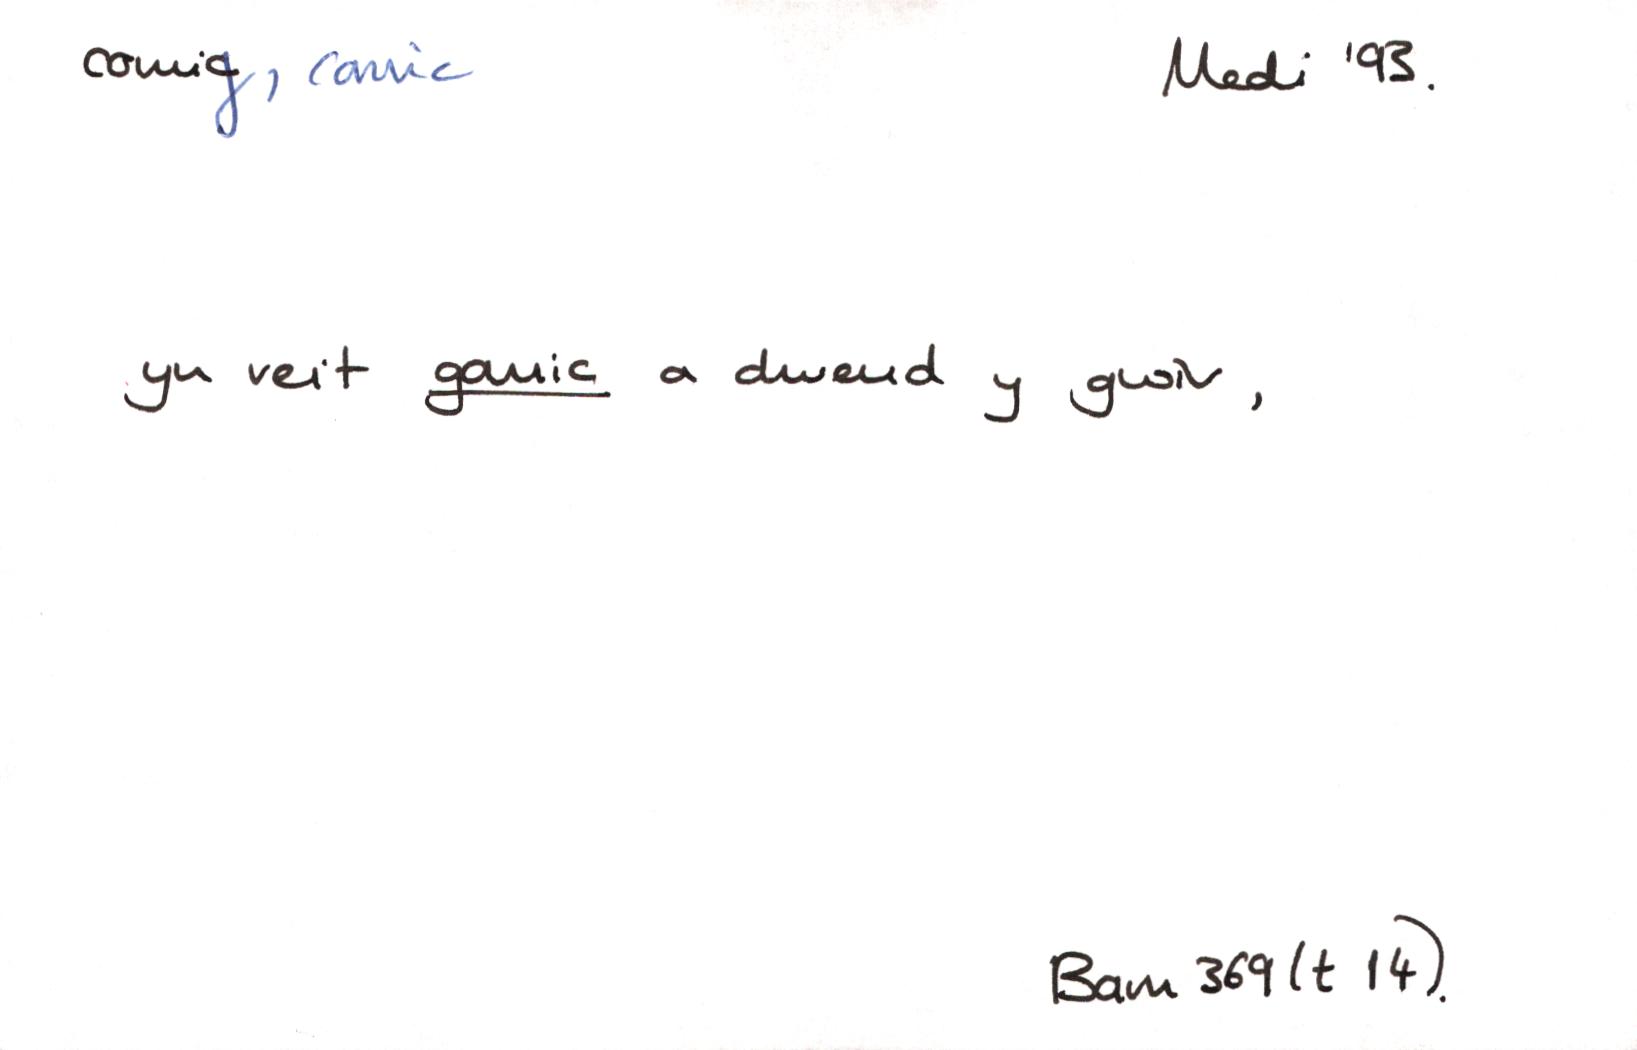 comig, camic Medi '93.
yn veit gamic a dwend y gwir,
Barn 369 (t 14).